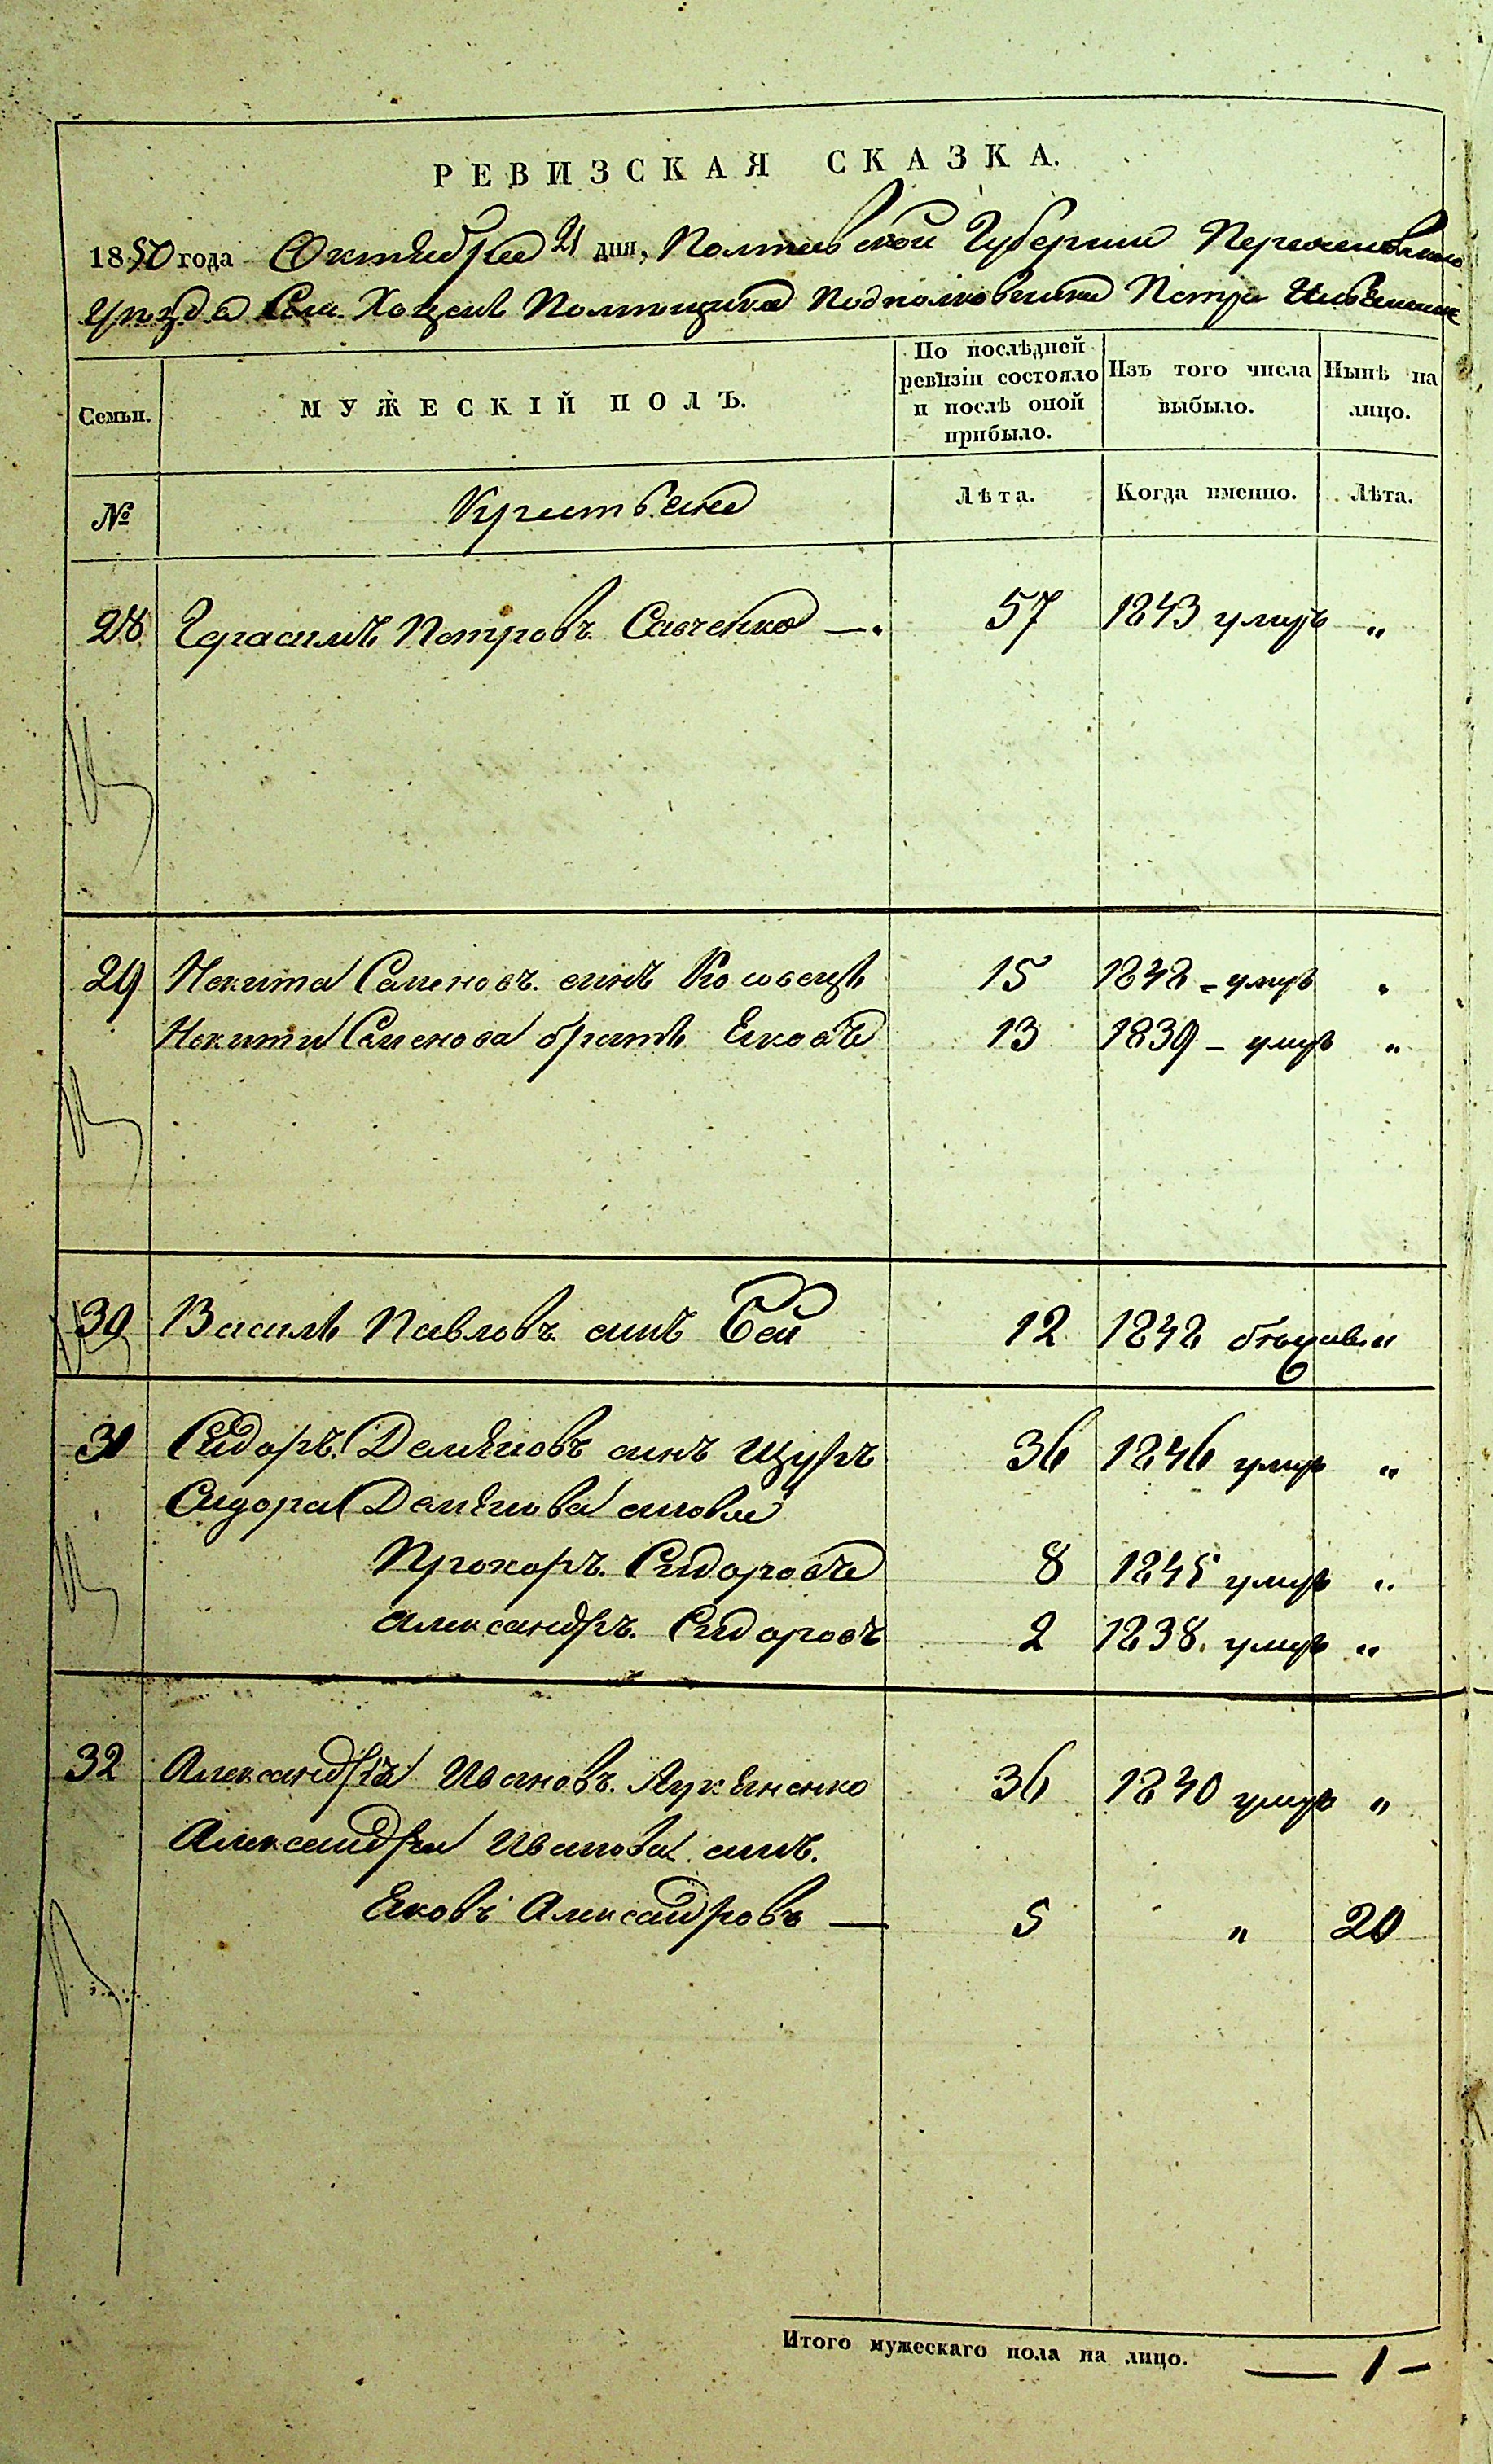 РЕВИЗСКАЯ СКАЗКА.
1850 года Октября 21 дня, Полтавской Губернии
уезда Сел. Хоцекъ Полтщика Подполковника Петра
Семьи.
МУЖЕСКІЙ ПОЛЪ.
По послѣдней ревизіи состояло и послѣ оной прибыло.
Изъ того числа выбыло.
Нынѣ на лицо.
№
Крестьяне
Лѣта.
Когда именно.
Лѣта.
28 Герасимъ Петровъ Савченко — 57 1843 умеръ „
29 Никита Семеновъ синъ Кошвецъ 15 1848 - умръ „
Никиты Семенова братъ Яковъ 13 1839 - умръ „
30 Василь Павловъ синъ Бей 12 1848
31 Сидоръ Демяновъ синъ Щуръ 36 1846 умръ „
Сидора Демянова сыновя
Прохоръ Сидоровъ 8 1845 умръ „
Александръ Сидоровъ 2 1838 умръ „
32 Александръ Ивановъ Лукяненко 36 1840 умръ „
Александра Иванова синъ.
Яковъ Александровъ — 5 „ 20
Итого мужескаго пола на лицо. — 1 —